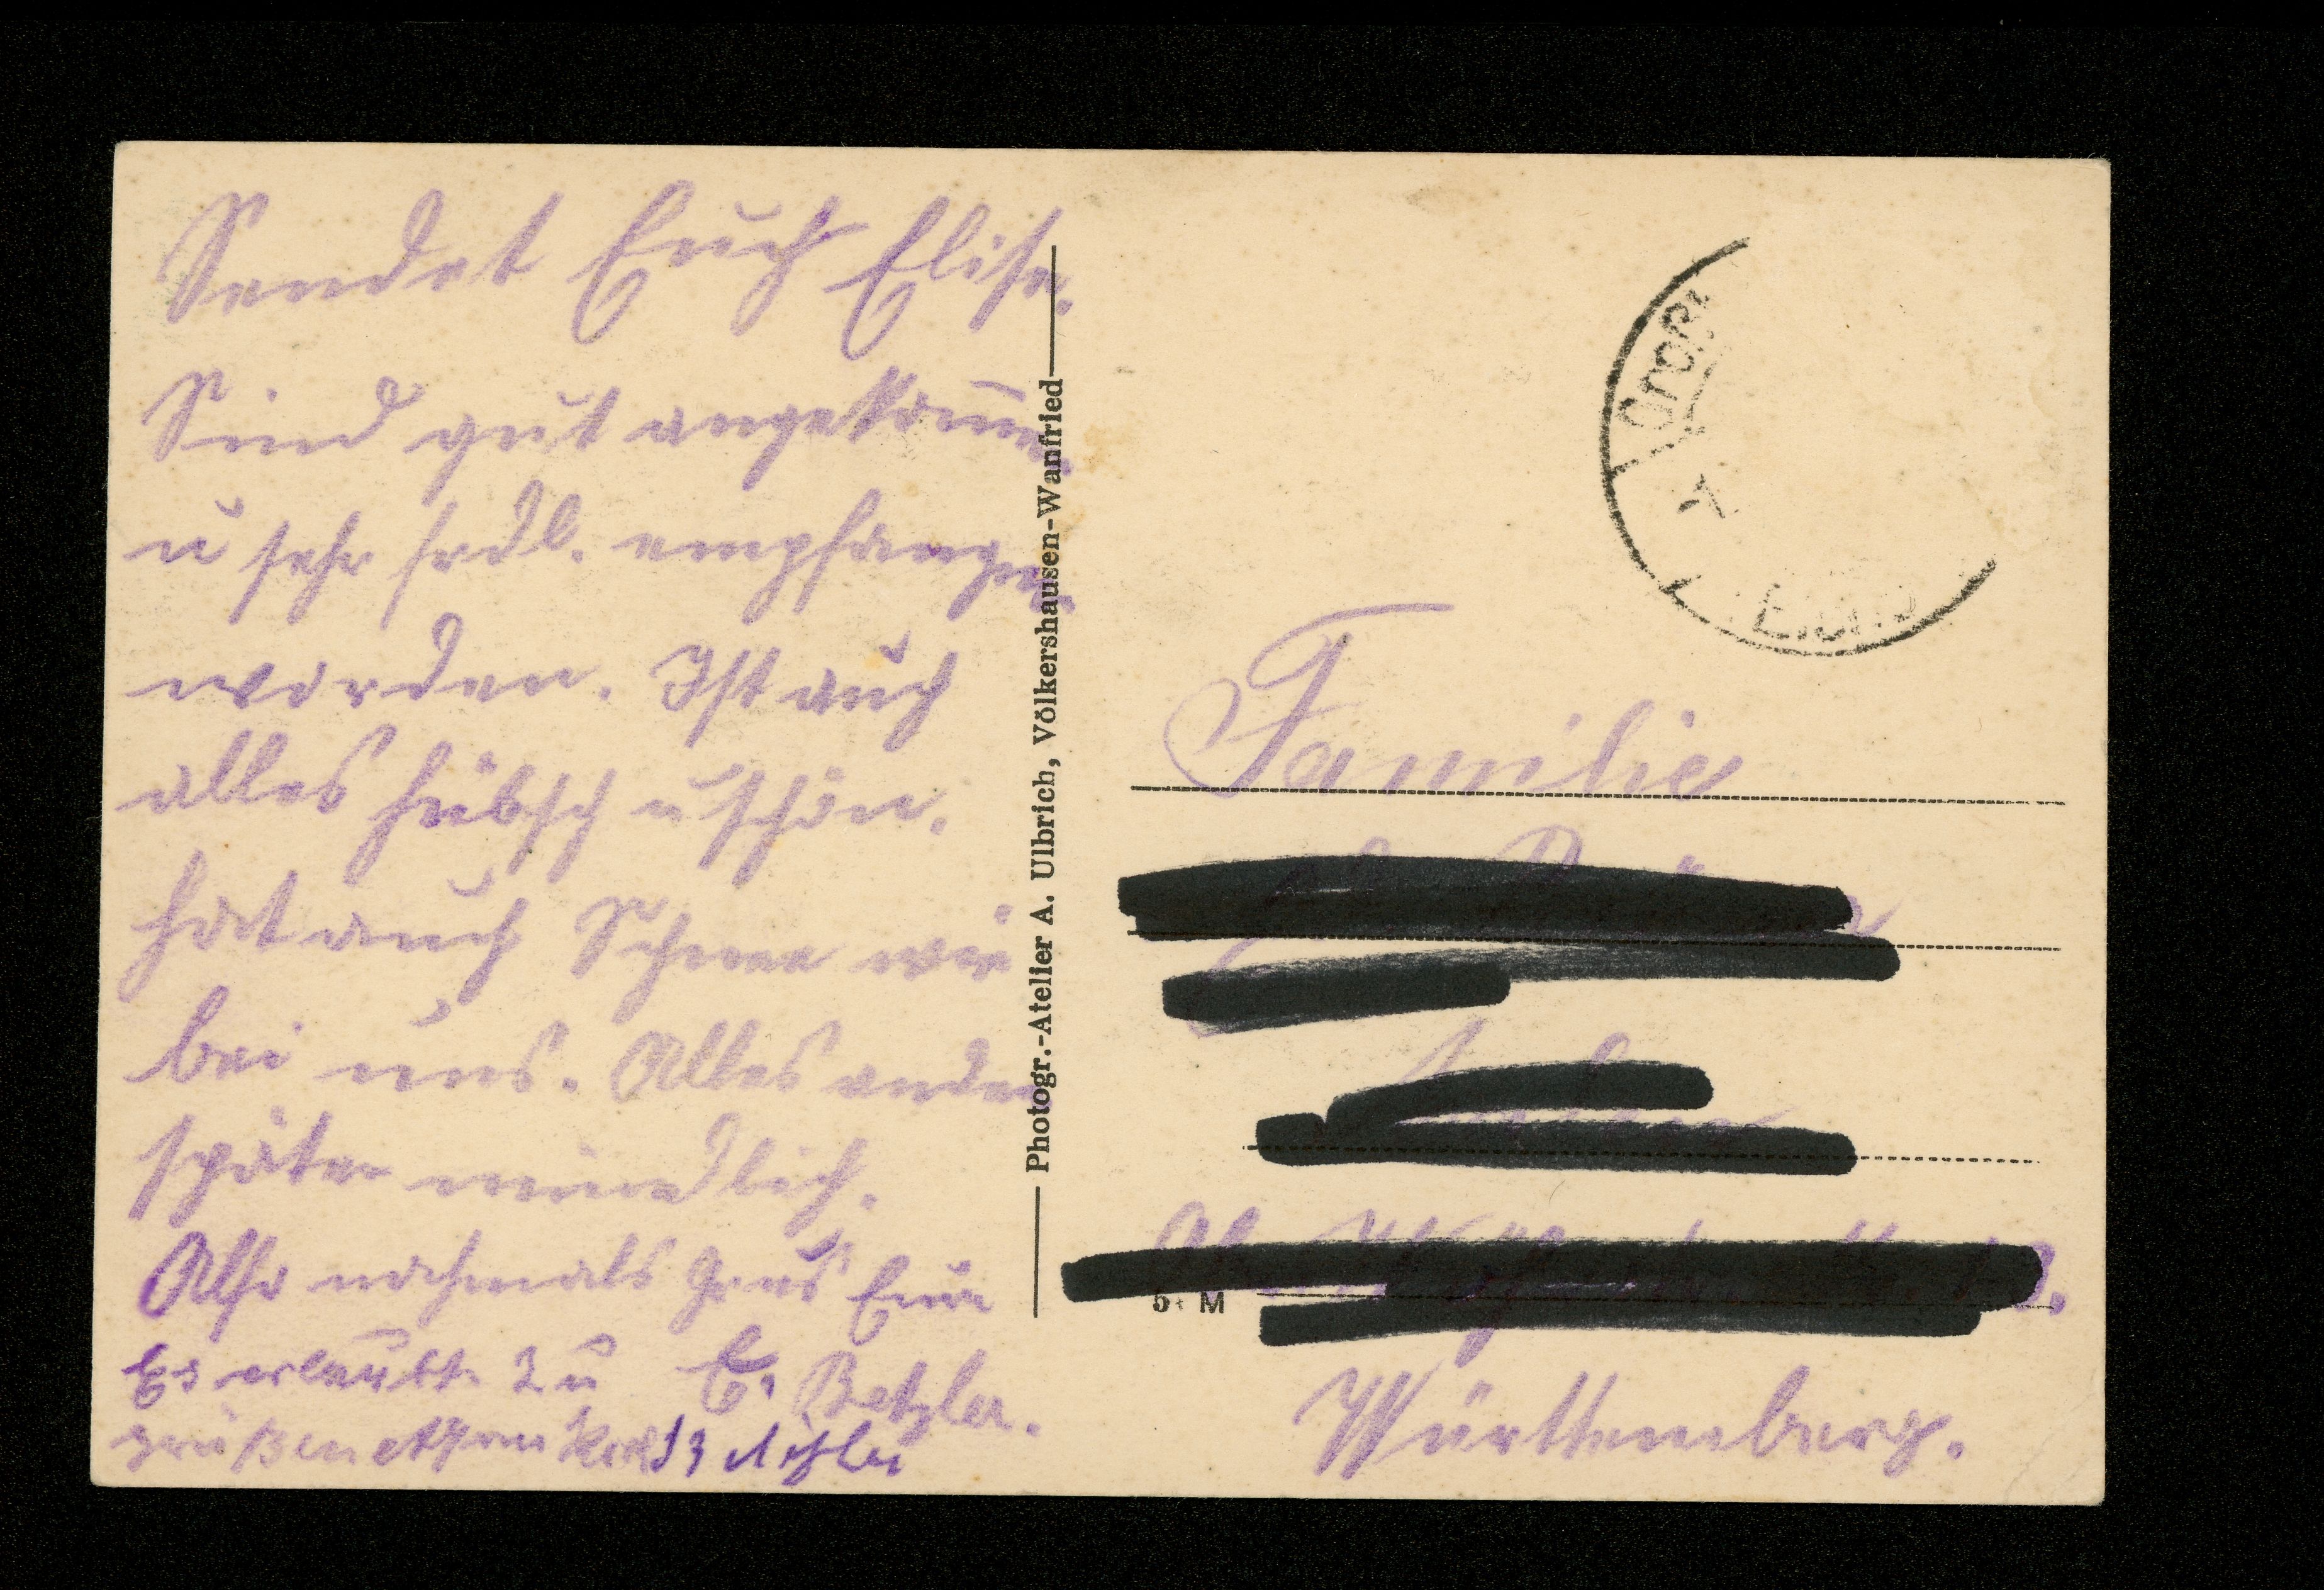 Sendet Euch Elise.
Sind gut angekommen
u sehr frdl. empfangen
worden. Ist auch
alles hübsch u schön.
Hat auch Schnee wie
bei uns. Alles andere
später mündlich.
Also nochmals Grus Eure
E. Betzler.
Es erlaubt zu
grüßen
Photogr.-Atelier A. Ulbrich, Völkershausen-Wanfried
Gross
Familie
M
Württemberg.